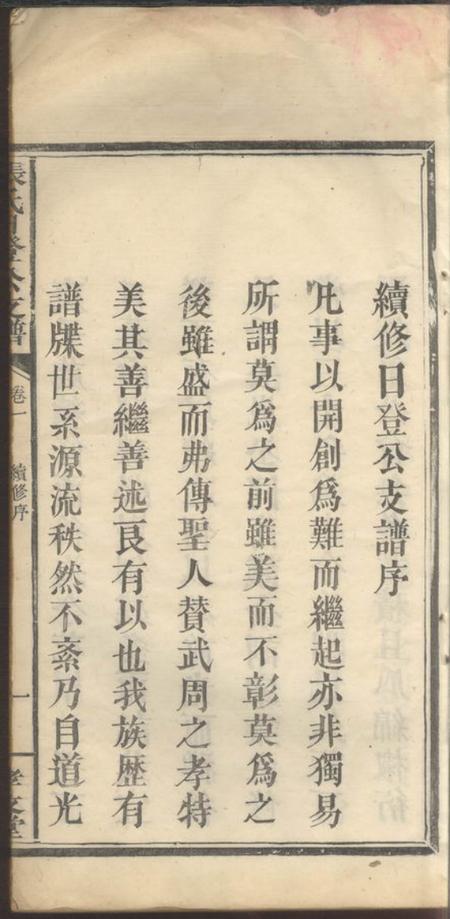 續修日登公支譜序
凡事以開創爲難而繼起亦非獨易
所謂莫爲之前雖美而不彰莫爲之
後雖盛而弗傳聖人贊武周之孝特
美其善繼善述良有以也我族歷有
譜牒世系源流秩然不紊乃自道光
張氏日登公支譜
卷一
續修序
一
孝友堂